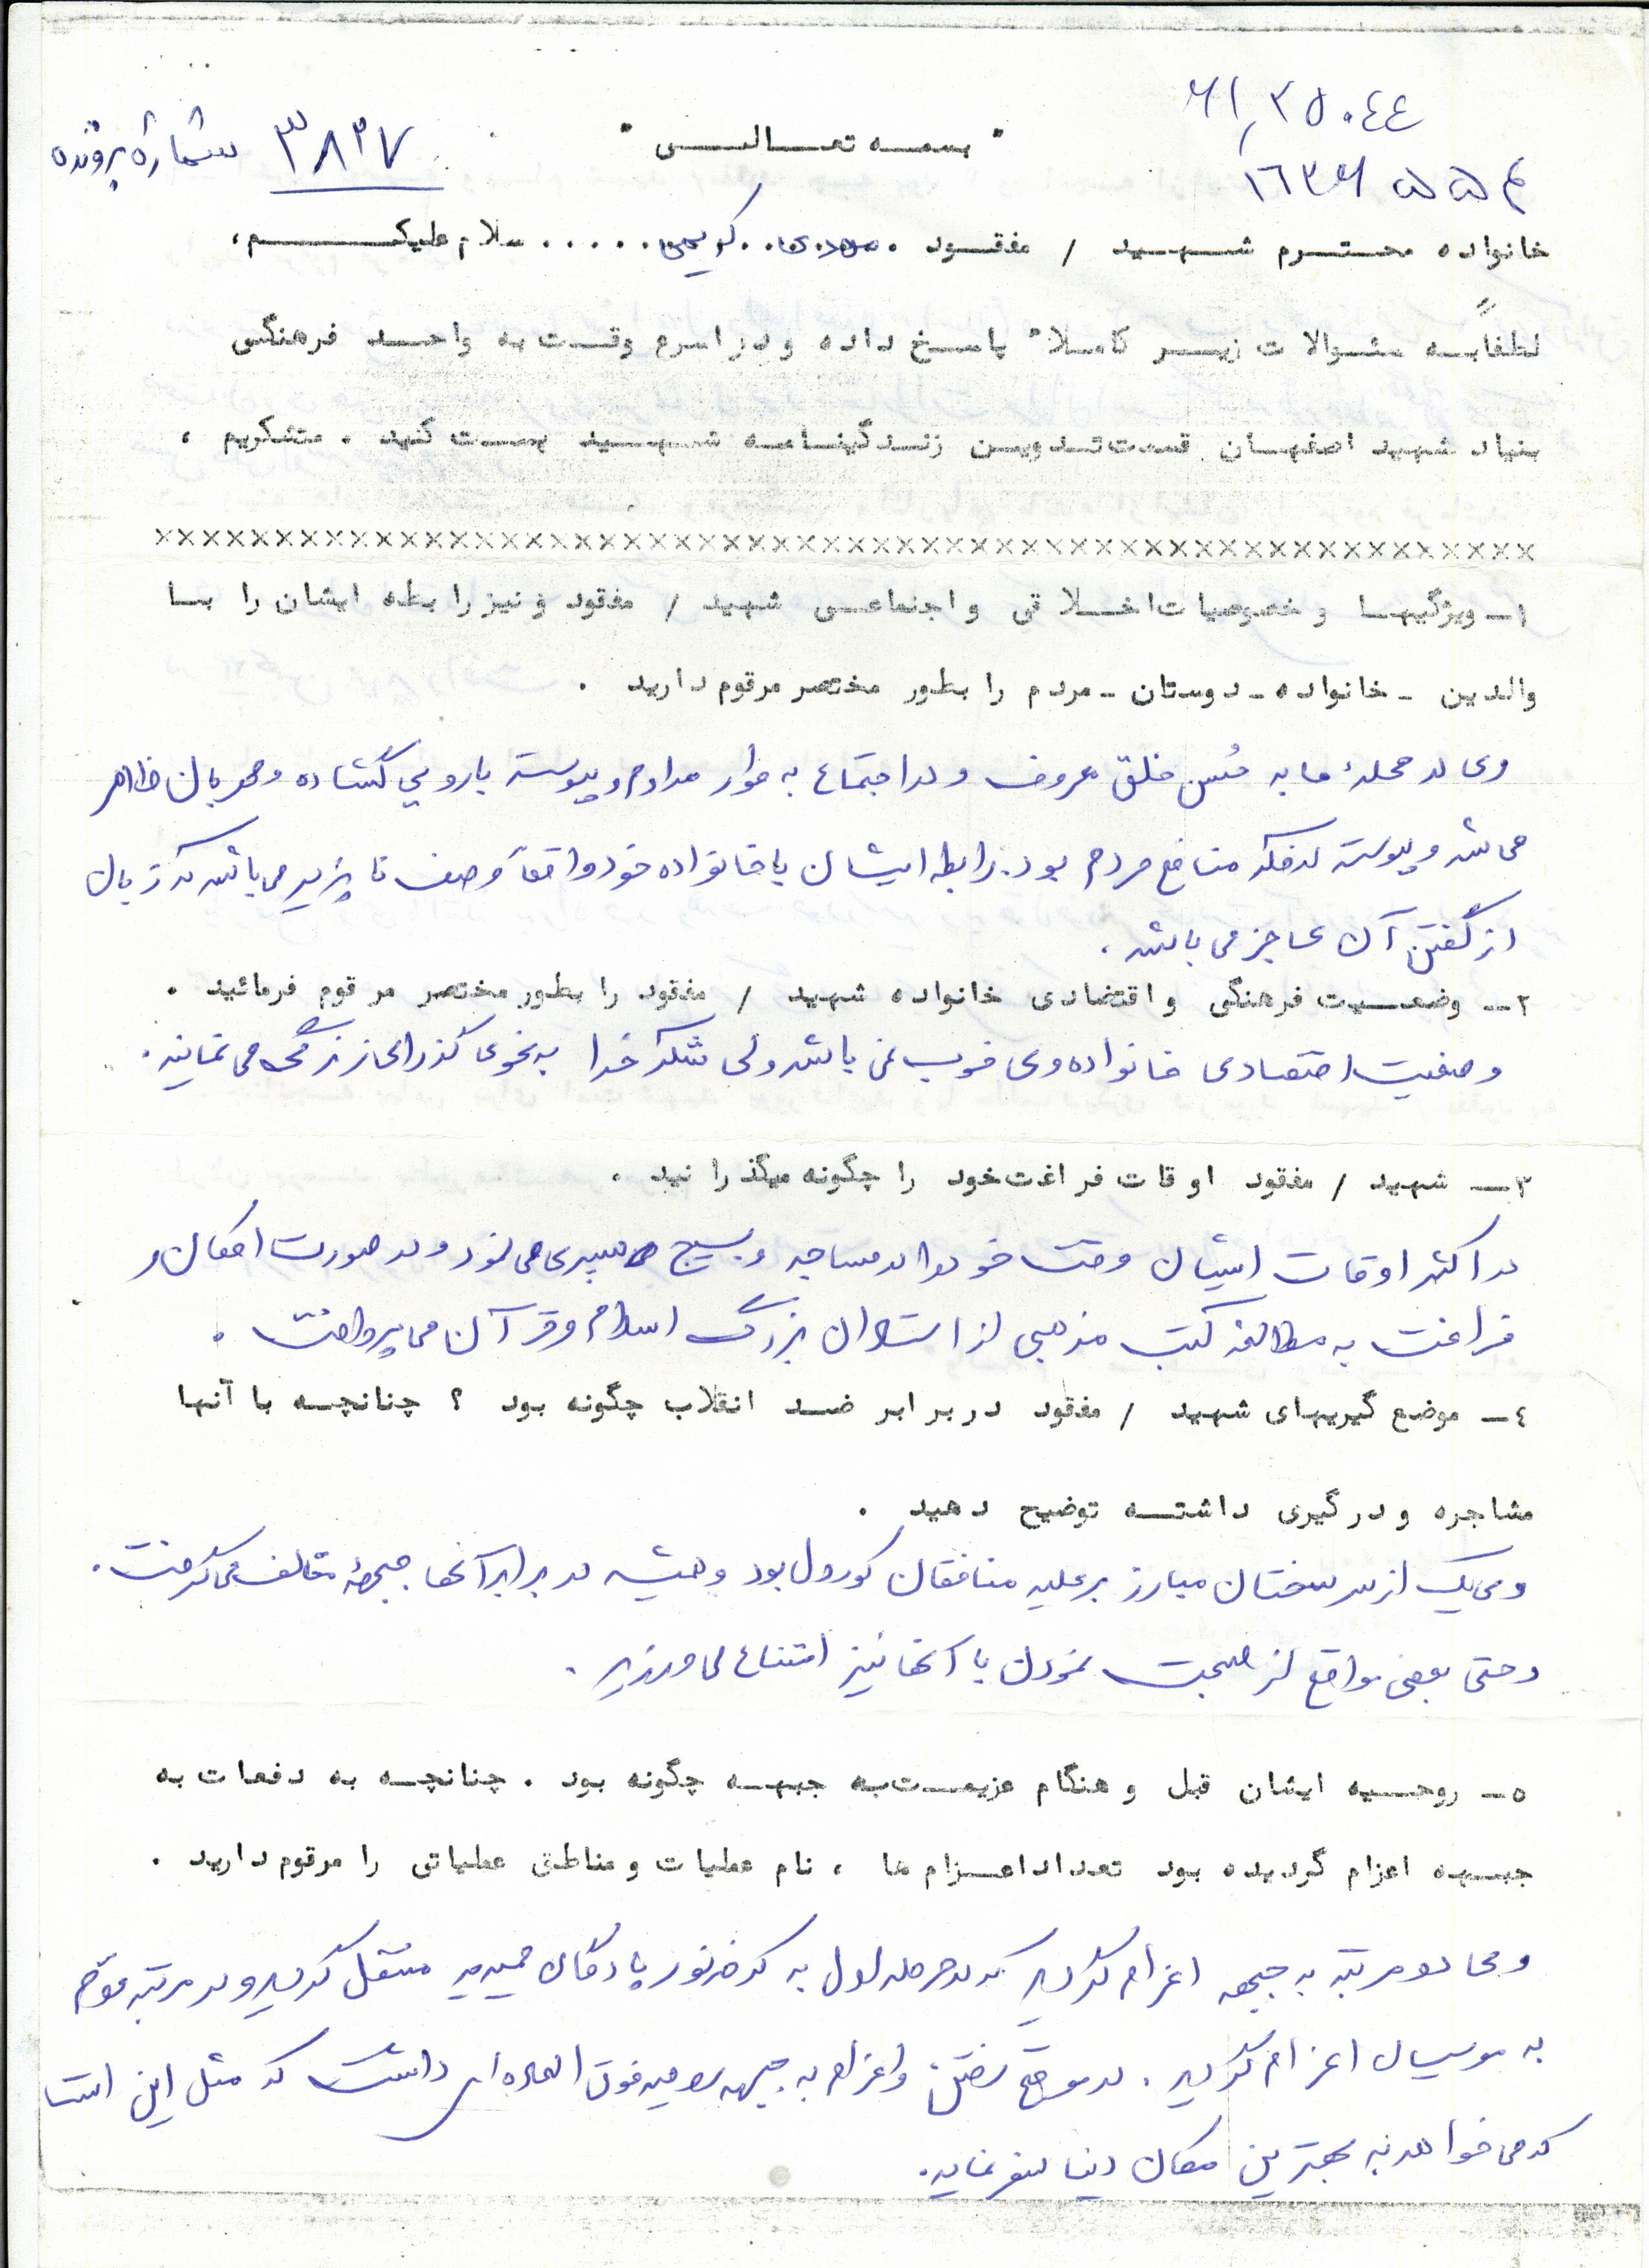 " بسمه تعالی "
شمارهٔ پرونده ۳۸۳۷
خانواده محترم شهید / مفقود . مهدی . . کریمی . . . . . سلام علیکم ،
لطفاً به سئوالات زیر کاملا" پاسخ داده و در اسرع وقت به واحد فرهنگی
بنیاد شهید اصفهان قسمت تدوین زندگینامه شهید پست کنید . متشکریم ،
××××××××××××××××××××××××××××××××××××××××××××××××××××××××
۱ـ ویژگیها و خصوصیات اخلاقی و اجتماعی شهید / مفقود و نیز رابطه ایشان را با
والدین ـ خانواده ـ دوستان ـ مردم را بطور مختصر مرقوم دارید .
وی در محلهٔ ما به حُسن خلق معروف و در اجتماع به طور مداوم و پیوسته با رویی گشاده و مهربان ظاهر
می شد و پیوسته در فکر منافع مردم بود. رابطه ایشان با خانواده خود واقعاً وصف ناپزیر می باشد که زبان
از گفتن آن عاجز می باشد .
۲ـ وضعیت فرهنگی و اقتصادی خانواده شهید / مفقود را بطور مختصر مرقوم فرمائید .
وضعیت اقتصادی خانواده وی خوب نمی باشد ولی شکر خدا به نحوی گذرای از زندگی می نمایند .
۳ـ شهید / مفقود اوقات فراغت خود را چگونه میگذرانید .
در اکثر اوقات ایشان وقت خود را در مساجد و بسیج سپری می نمود و در صورت امکان و
فراغت به مطالعه کتب مذهبی از استادان بزرگ اسلام و قرآن می پرداخت .
٤ـ موضع گیریهای شهید / مفقود در برابر ضد انقلاب چگونه بود ؟ چنانچه با آنها
مشاجره و درگیری داشته توضیح دهید .
وی یک از سرسختان مبارز بر علیه منافقان کوردل بود و همیشه در برابر آنها جبههٔ مخالف می گرفت .
و حتی بعضی مواقع از صحبت نمودن با آنها نیز امتناع می ورزید .
٥ـ روحیه ایشان قبل و هنگام عزیمت به جبهه چگونه بود . چنانچه به دفعات به
جبهه اعزام گردیده بود تعداد اعزام ها ، نام عملیات و مناطق عملیاتی را مرقوم دارید .
وی دو مرتبه به جبهه اعزام گردید که در مرحله اول به کرخه نور پادگان حمیدیه منتقل گردید و در مرتبه دوم
به سوسیان اعزام گردید . در موقع رفتن و اعزام به جبهه روحیه فوق العاده ای داشت که مثل این است
که می خواهد به بهترین مکان دنیا سفر نماید .